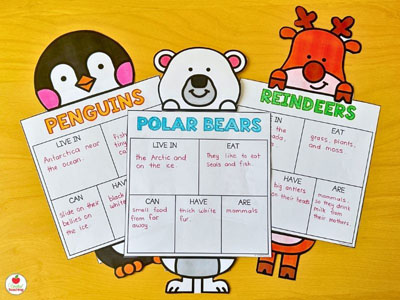 PENGUINS
LIVE IN
Antarctica near
the ocean.
CAN
slide on their
bellies on
the ice.
POLAR BEARS
LIVE IN
the Arctic and
on the ice.
EAT
They like to eat
seals and fish.
CAN
smell food
from far
away
HAVE
thick white
fur.
ARE
mammals
REINDEERS
EAT
grass, plants,
and moss.
HAVE
big antlers
on their heads
ARE
mammals
so they drink
milk from
their mothers.